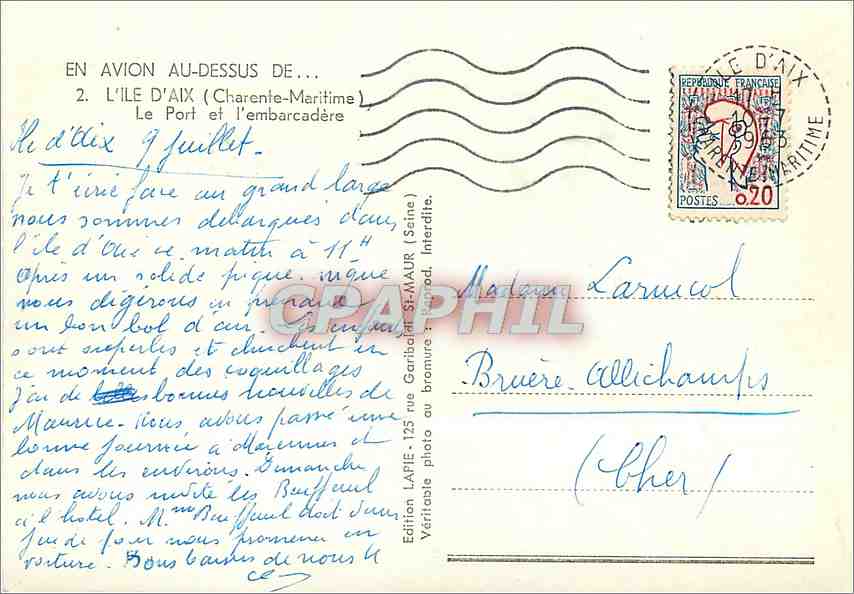 EN AVION AU-DESSUS DE...
2. L'ILE D'AIX (Charente-Maritime)
Le Port et l'embarcadère
Ile d'Aix 9 juillet -
Je t'écris face au grand large
nous sommes débarqués dans
l'île d'Aix ce matin à 11H
Après un solide pique-nique
nous digérons en prenant
un bon bol d'air. Les enfants
sont superbes et cherchent en
ce moment des coquillages
J'ai de bonnes nouvelles de
Maurice. Nous avons passé une
bonne journée à Marennes et
dans les environs. Dimanche
nous avons invité les
à l'hotel. Mme doit
jour nous promener en
voiture. Bons baisers de nous
Edition LAPIE - 125 rue Garibaldi ST-MAUR (Seine)
Véritable photo au bromure : Reprod. Interdite.
CPAPHIL
ILE D'AIX
CHARENTE-MARITIME
REPUBLIQUE FRANÇAISE
POSTES 0,20
Madame Larucol
Bruère-Allichamps
(Cher)